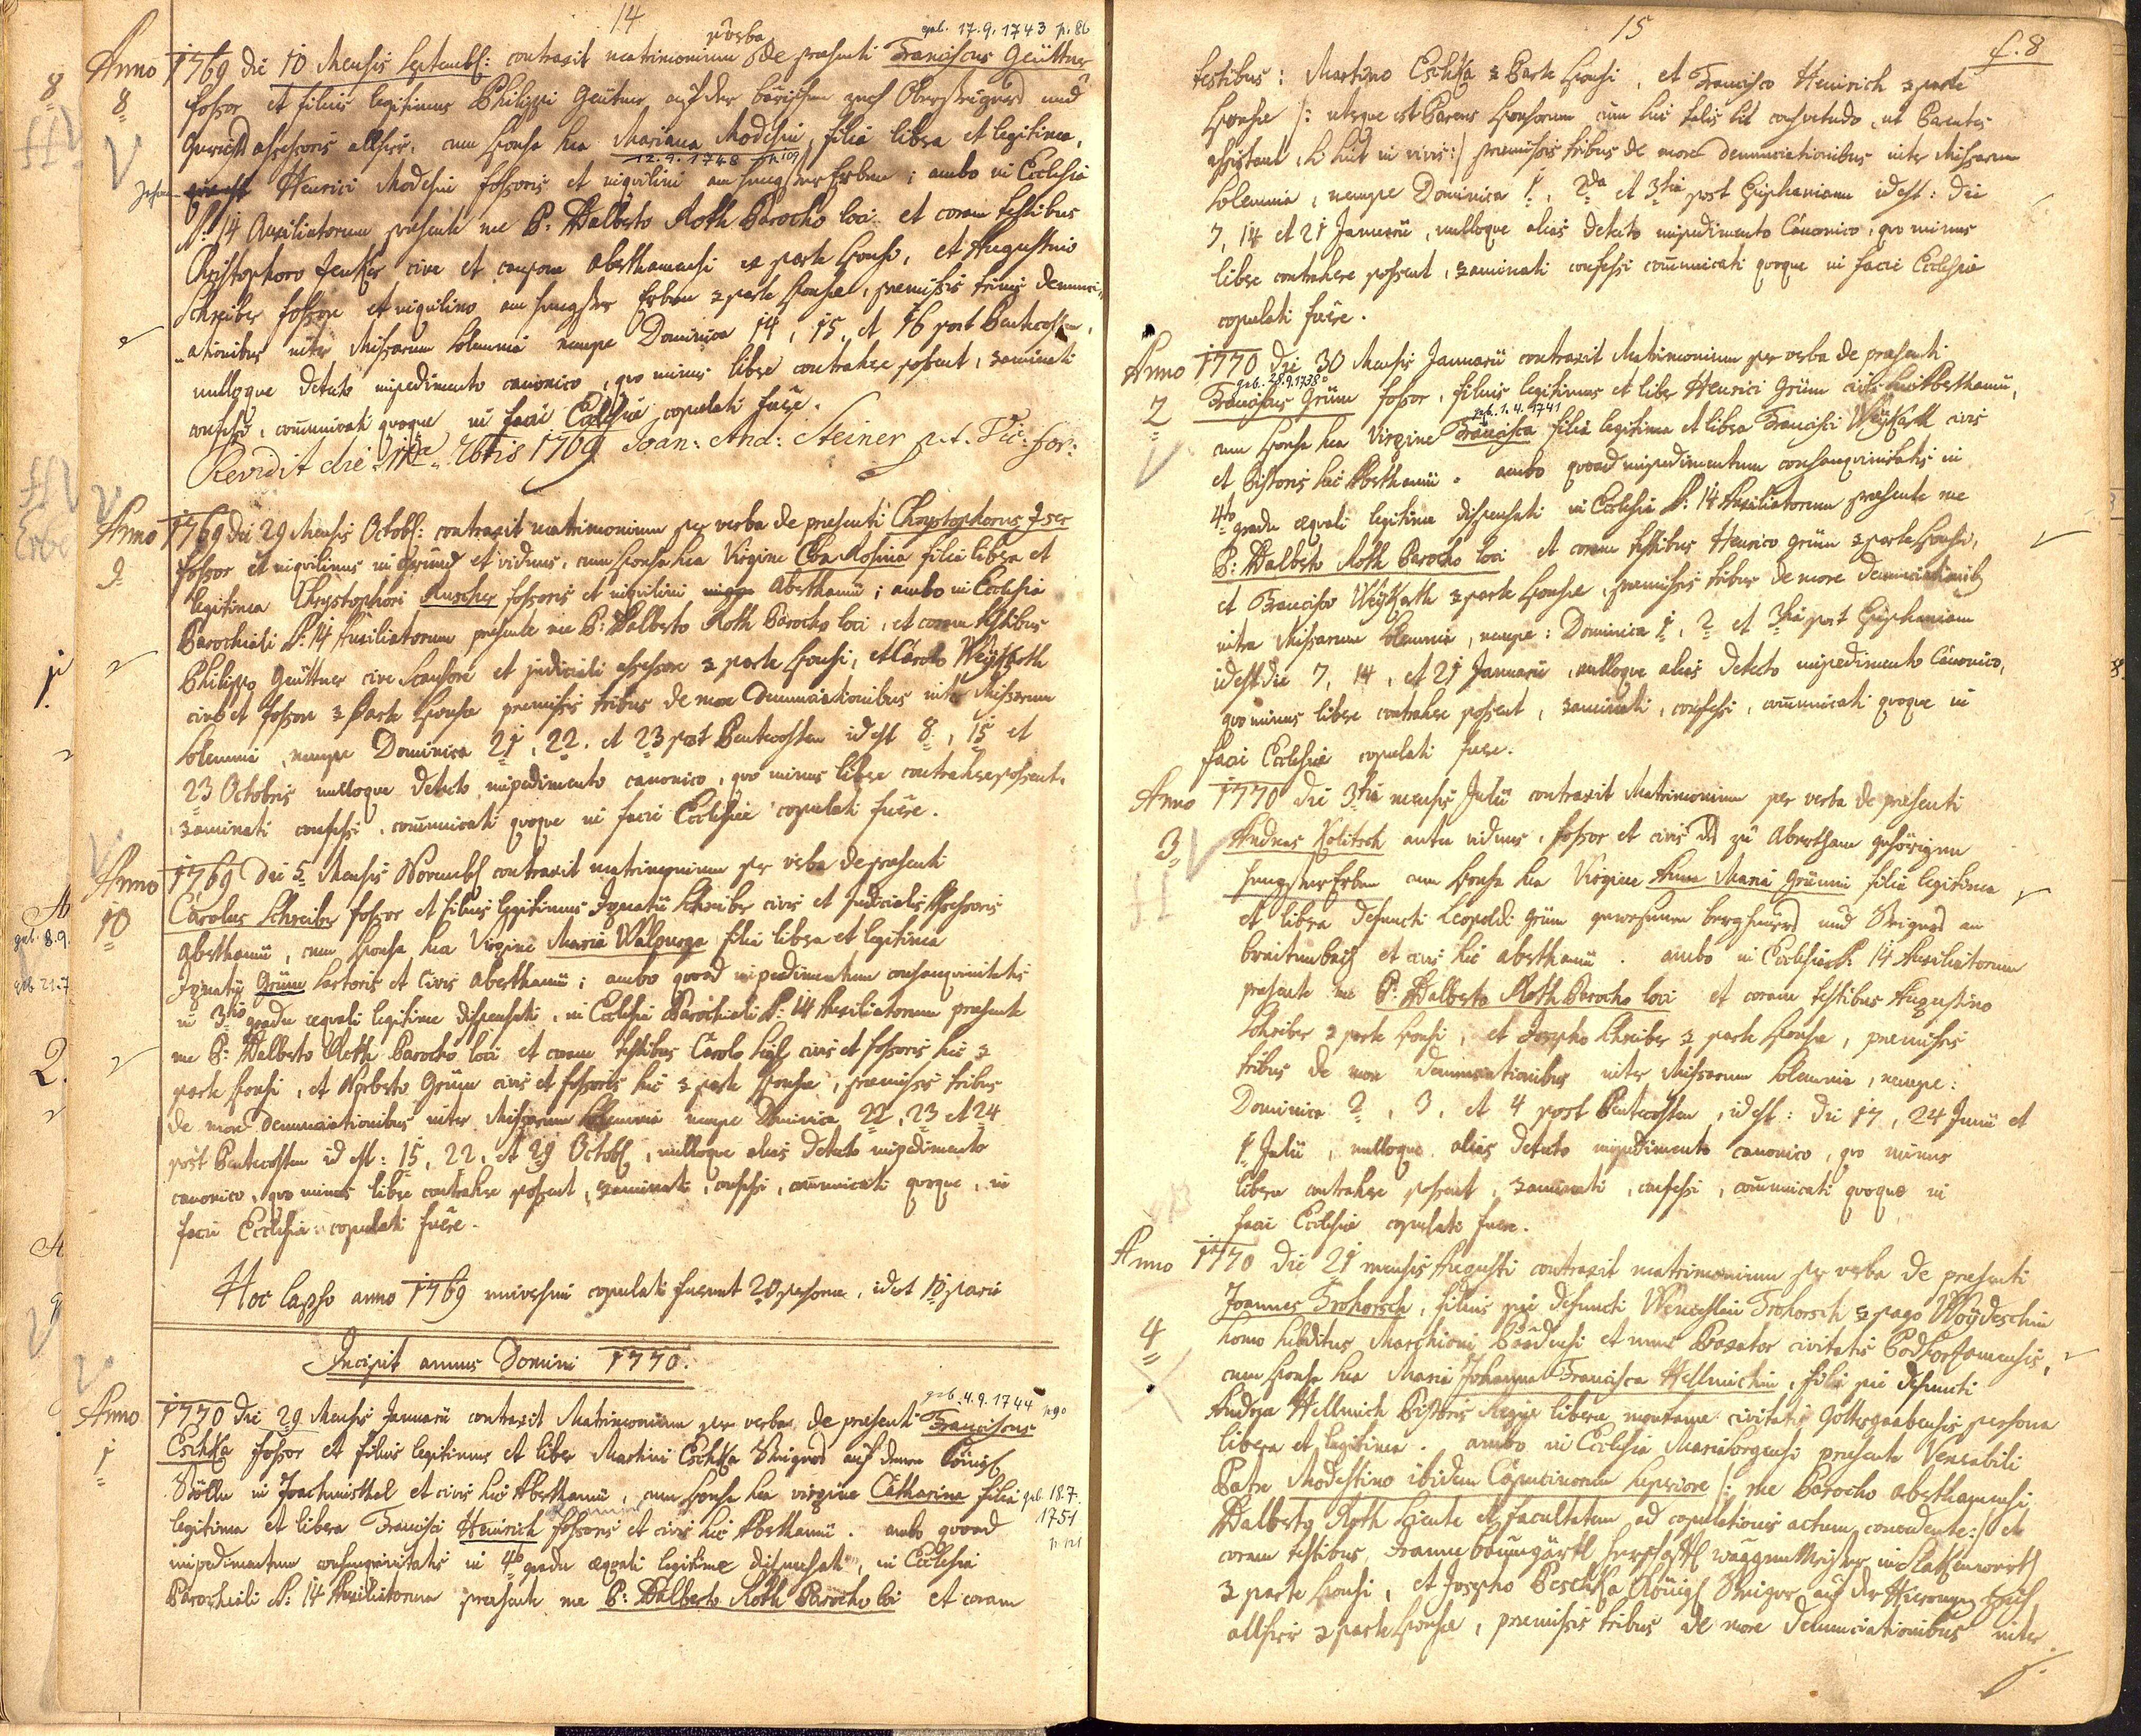 14
geb. 17.9.1743 p. 86
p verba
Anno 1769 die 10 Mensis Septembr: contraxit matrimonium de præsenti Franciscus Geüttner
8 fossor et filius legitimus Philippi Geütner auf der
assessoris allhier, cum sponsa sua Mariana Modesin, filia libera et legitima,
12.9.1748 p. 109
Henrici Modesin fossoris et inquilini am Hengster Erben; ambo in Ecclesia
S: 14 Auxiliatorum præsente me P. Adalberto Roth Parocho loci et coram testibus
Christophoro Jenker cive et caupone aberthamensi ex parte sponsi, et Augustino
Schreiber fossore et inquilino am Hengster Erben ex parte sponsæ, præmissis trinis denunci,,
,,ationibus inter Missarum solemnia nempe Dominica 14, 15, et 16 post Pentecosten,
nulloque detecto impedimento canonico, quo minus libere contrahere possent, examinati
confessi, communicati quoque in facie Ecclesiæ copulati fuere.
Revidit die 7bris 1769 Joan: And: Steiner p.t. Vic: For:
Anno 1769 die 29 Mensis Octobr: contraxit matrimonium per verba de præsenti Chrystophorus
9 fossor et inquilinus in et viduus, cum sponsa sua Virgine Eva Rosina filia libera et
legitima Chrystophori Ruscher fossoris et inquilini Aberthamii; ambo in Ecclesia
Parochiali S: 14 Auxiliatorum præsente me P: Adalberto Roth Parocho loci, et coram testibus
Philippo Geüttner cive et judiciali assessore ex parte sponsi, et Carolo
cive et fossore ex parte sponsæ præmissis tribus de more denunciationibus inter Missarum
solemnia, nempe Dominica 21, 22, et 23 post Pentecosten id est 8, 15 et
23 Octobris nulloque detecto impedimento canonico, quo minus libere contrahere possent,
examinati confessi, communicati quoque in facie Ecclesiæ copulati fuere.
Anno 1769 Die 5 Mensis Novembr contraxit matrimonium per verba de præsenti
10 Carolus Schreiber fossor et filius legitimus Ignatii Schreiber civis et Judicialis Assessoris
Aberthamii, cum sponsa sua Virgine Maria Walpurga filia libera et legitima
Ignatij Grüm sartoris et Civis Aberthamii; ambo quoad impedimentum consanquinitatis
in 3tio gradu æquali legitime dispensati, in Ecclesia Parochiali S: 14 Auxiliatorum præsente
me P: Adalberto Roth Parocho loci et coram testibus Carolo civis et fossoris hic ex
parte sponsi, et Norberto Grüm civis et fossoris hic ex parte sponsæ, præmissis tribus
de more denunciationibus inter Missarum solemnia nempe Dominica 22, 23 et 24
post Pentecosten id est: 15, 22, et 29 Octobr, nulloque alias detecto impedimento
canonico, quo minus libere contrahere possent, examinati, confessi, communicati quoque, in
facie Ecclesiæ copulati fuere.
Hoc lapso anno 1769 universim copulati fuerunt 20 personæ, id est 10 paria
Incipit annus Domini 1770.
geb. 4.9.1744
Anno 1770 Die 29 Mensis Januarii contraxit Matrimonium per verba de præsenti Franciscus
1 Eschka fossor et filius legitimus et liber Martini Eschka
in Joachimsthal et civis hic Aberthamii, cum sponsa sua virgine Catharina filia
geb. 18.7. 1751
legitima et libera Francisci Heinrich fossoris et civis hic Aberthamii. ambo quoad
impedimentum consanquinitatis in 4to gradu æquali legitime dispensati, in Ecclesia
Parochiali S: 14 Auxiliatorum præsente me P: Adalberto Roth Parocho loci et coram
15
f. 8
testibus: Martino Eschka ex Parte sponsi, et Francisco Heinrich ex parte
sponsæ /: uterque est Parens sponsorum cum hic talis sit consuetudo, ut Parentes
assistant, si sint in vivis :/ præmissis tribus de more denunciationibus inter Missarum
solemnia, nempe Dominica 1, 2da et 3tia post Epiphaniam id est: die
7, 14 et 21 Januarii, nulloque alias detecto impedimento Canonico, quo minus
libere contrahere possent, examinati confessi communicati quoque in facie Ecclesiæ
copulati fuere.
Anno 1770 die 30 Mensis Januarii contraxit Matrimonium per verba de præsenti
geb. 28.9.1738
2 Franciscus Grüm fossor, filius legitimus et liber Henrici Grüm civis hic Aberthamii,
geb. 1.4.1741
cum sponsa sua Virgine Francisca filia legitima et libera Francisci civis
et Pistoris hic Aberthamii. ambo quoad impedimentum consanquinitatis in
4to gradu æquali legitime dispensati in Ecclesia S: 14 Auxiliatorum præsente me
P: Adalberto Roth Parocho loci et coram testibus Henrico Grüm ex parte sponsi,
et Francisco ex parte sponsæ, præmissis tribus de more denunciationibus
intra Missarum solemnia, nempe: Dominica 1, 2 et 3tia post Epiphaniam
id est die 7, 14, et 21 Januarii, nulloque alias detecto impedimento Canonico,
quo minus libere contrahere possent, examinati, confessi, communicati quoque in
facie Ecclesiæ copulati fuere.
Anno 1770 die 3tia mensis Julii contraxit Matrimonium per verba de præsenti
3 Andreas Kolitsch antea viduus, fossor et civis zu Abertham gehörigen
Hengster Erben cum sponsa sua Virgine Anna Maria Grümin filia legitima
et libera defuncti Leopoldi Grüm gewesenen und Steigers am
breitenbach et civis hic Aberthamii. ambo in Ecclesia S: 14 Auxiliatorum
præsente me P: Adalberto Roth Parocho loci et coram testibus Augustino
Schreiber ex parte sponsi, et Josepho Schreiber ex parte sponsæ, præmissis
tribus de more denunciationibus inter Missarum solemnia, nempe:
Dominica 2, 3, et 4 post Pentecosten, id est: die 17, 24 Junii et
1 Julii, nulloque alias detecto impedimento canonico, quo minus
libere contrahere possent, examinati, confessi, communicati quoque in
facie Ecclesiæ copulati fuere.
Anno 1770 die 21 mensis Augusti contraxit matrimonium per verba de præsenti
Joannes Trohorsch, filius pie defuncti Wenceslai Trohorsch ex pago Woydeschin
4 homo subditus Marchioni Baadensi et civitatis
cum sponsa sua Maria Johanna Francisca Hellmichin, filia pie defuncti
Andreæ Hellmich Pistoris Regiæ liberæ montanæ civitatis Gottesgaabensis persona
libera et legitima. ambo in Ecclesia Mariæsorgensi præsente Venerabili
Patre Modestino ibidem Capucinorum superiore /: me Parocho aberthamensi
Adalberto Roth sciente et facultatem ad copulationis actum concedente :/ et
coram testibus Joanne
ex parte sponsi, et Josepho Peschka Königl Steiger auf der
allhier ex parte sponsæ, præmissis tribus de more denunciationibus inter